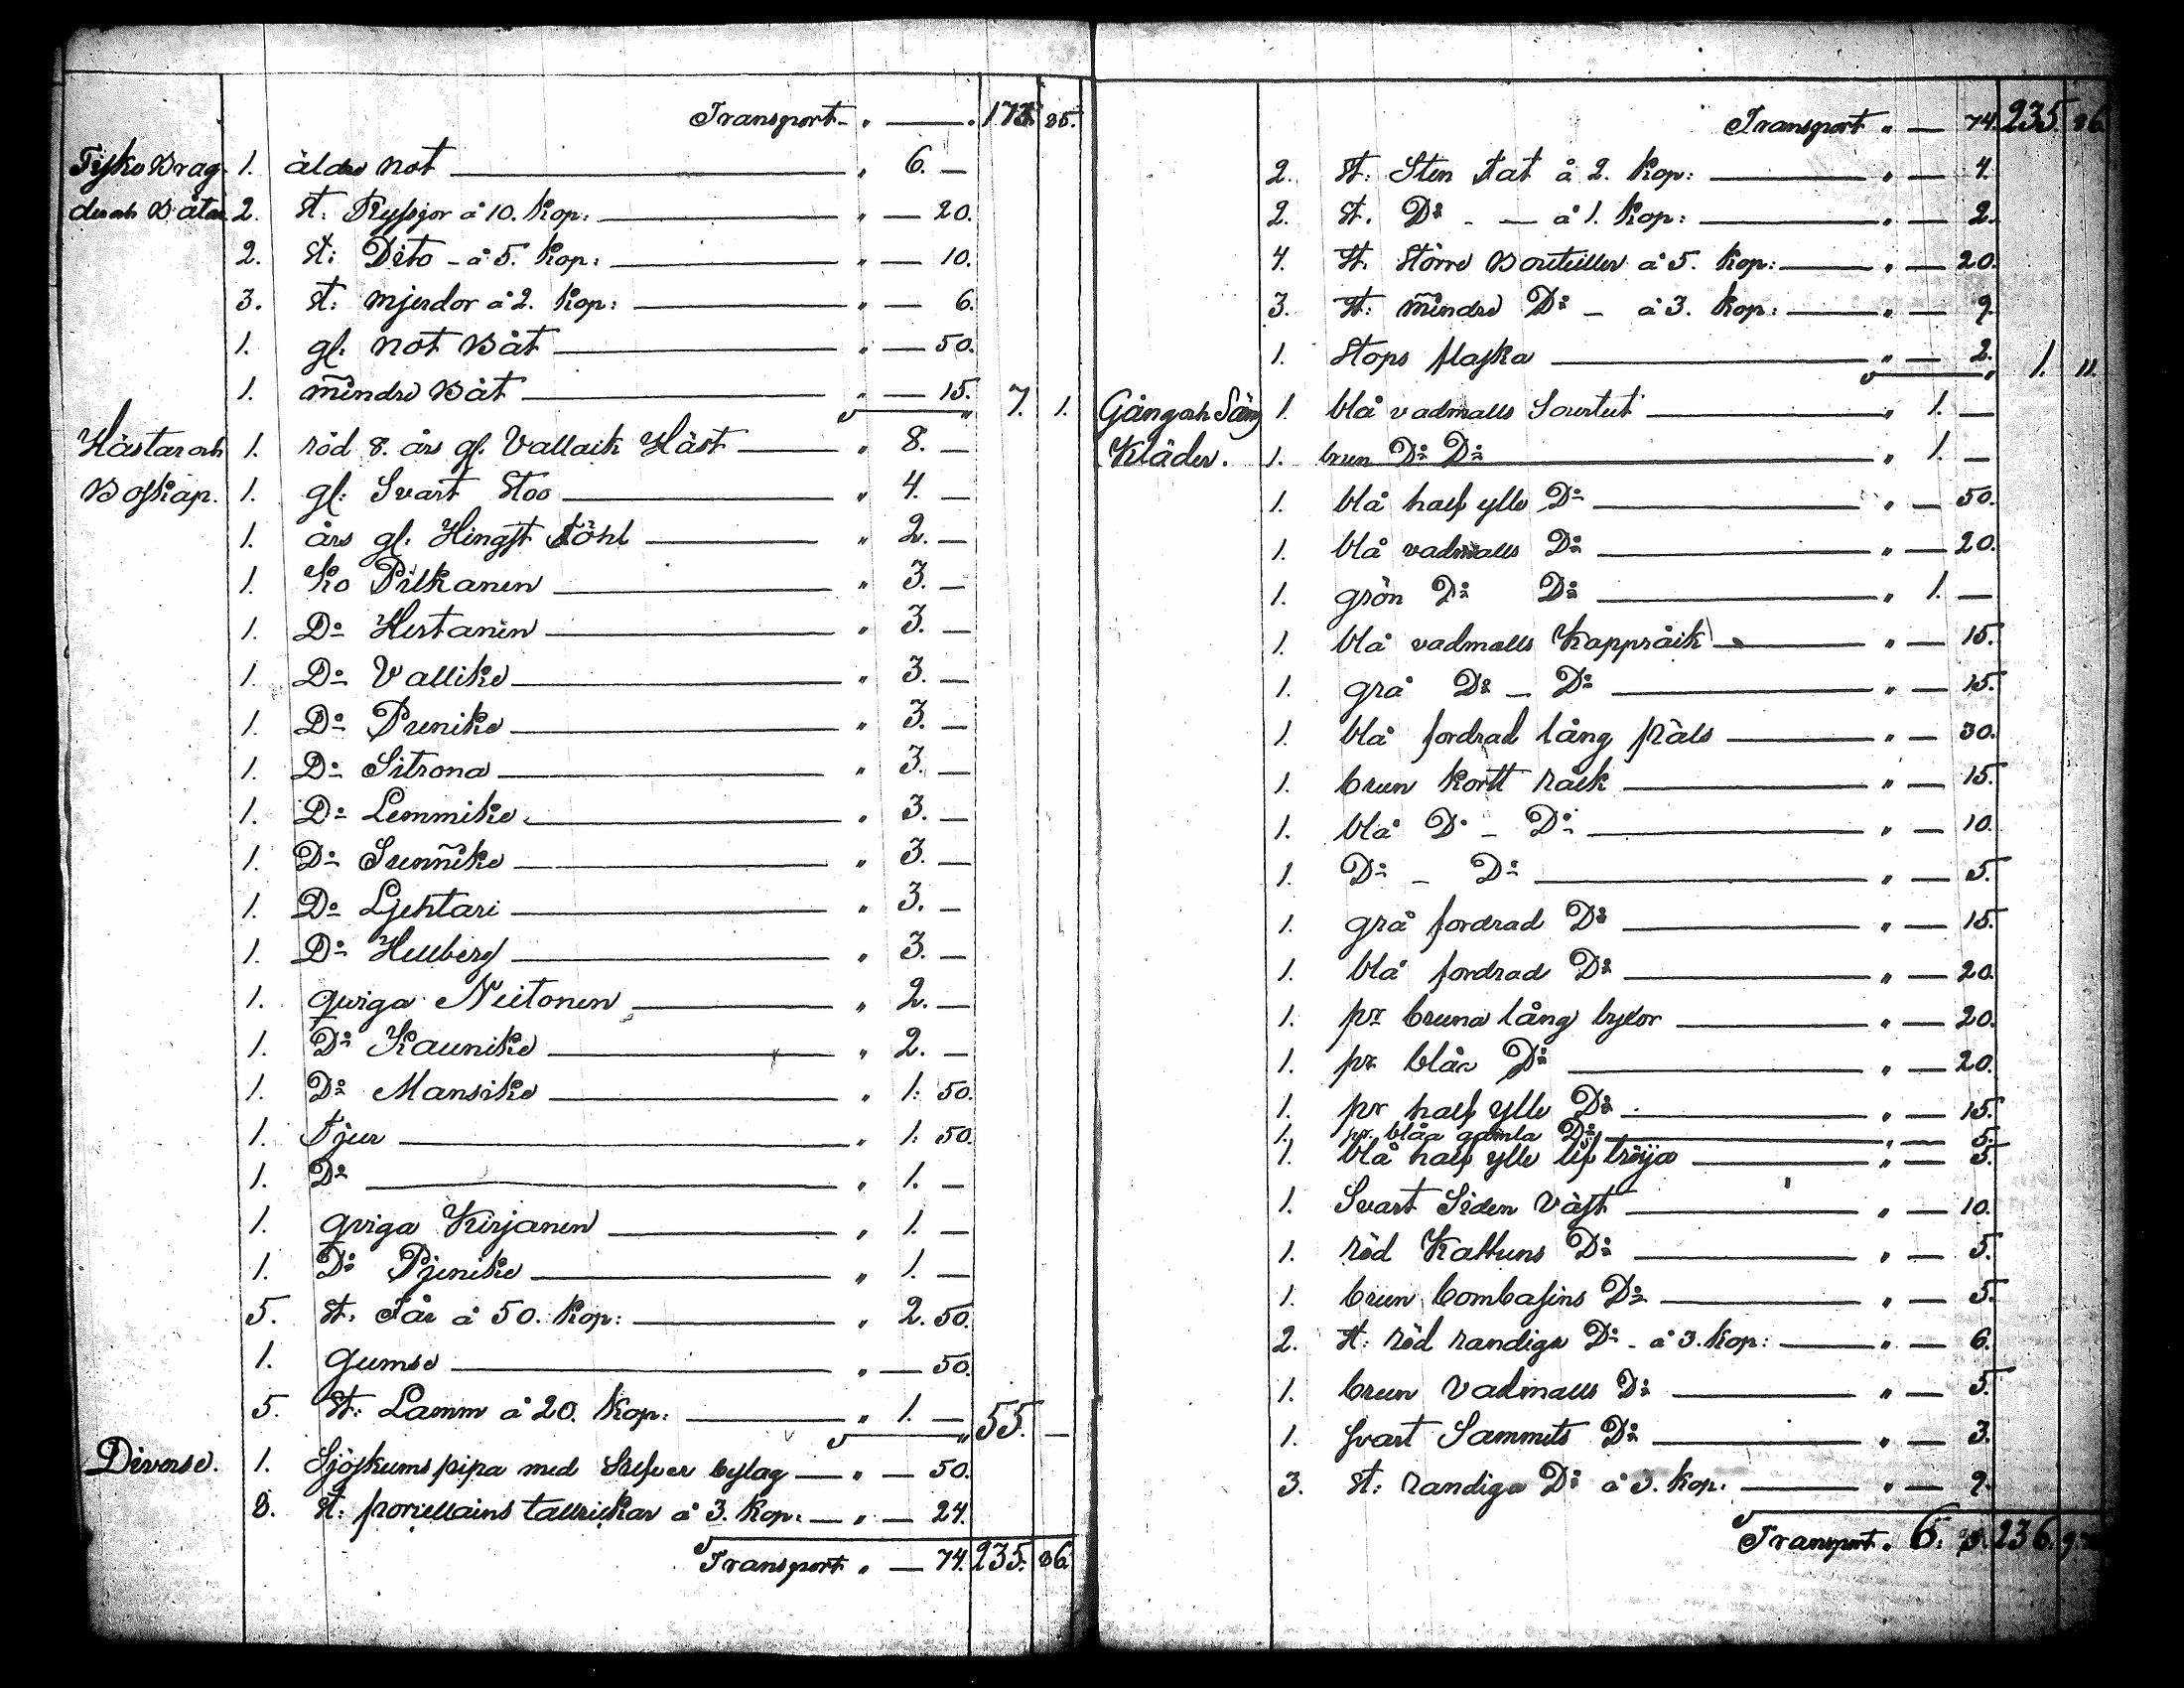 Transport - " — . 173. 85.
Fiske Brag 1. äldre not — " 6. —
der och Båtar 2. st: Ryssjor á 10. Kop: — " — 20.
2. st: Dito - á 5. Kop: — " — 10.
3. st: mjerdor á 2. Kop: — " — 6.
1. gl: not Båt — " — 50.
1. mindre Båt — " — 15. 7. 1.
Hästar och 1. röd 8. års gl. Vallack Häst — " 8. —
Boskap. 1. gl: Svart Stoo — " 4. —
1. års gl: Hingst föhl — " 2. —
1. Ko Pilkanen — " 3. —
1. Do Hertanen — " 3. —
1. Do Vallike — " 3. —
1. Do Punike — " 3. —
1. Do Sitrona — " 3. —
1. Do Lemmike — " 3. —
1. Do Sunnike — " 3. —
1. Do Ljehtari — " 3. —
1. Do Hellberg — " 3. —
1. qviga Neitonen — " 2. —
1. Do Kaunike — " 2. —
1. Do Mansike — " 1: 50.
1. Tjur — " 1: 50.
1. Do — " 1. —
1. qviga Kirjanen — " 1. —
1. Do Pjenike — " 1. —
5. st: Får á 50. Kop: — " 2. 50.
1. Gumse — " — 50.
5. st: Lamm á 20. Kop: — " 1. — 55. —
Diverse. 1. Sjöskums pipa med Silfver beslag — " — 50.
8. st: porcellains tallrickar á 3. Kop: — " — 24.
Transport " — 74. 235. 86.
Transport " — 74. 235. 86.
2. st: Sten fat á 2. Kop: — " — 4.
2. st. Do - — á 1. Kop: — " — 2.
4. st. större Bouteiller á 5. Kop: — " — 20.
3. st: mindre Do — á 3. Kop: — " — 9.
1. Stops flaska — " — 2. 1. 11.
Gång och Säng 1. blå vadmalls Sourtut — " 1. —
Kläder. 1. brun Do Do — " 1. —
1. blå half ylle Do — " — 50.
1. blå vadmalls Do — " — 20.
1. grön Do Do — " 1. —
1. blå vadmalls Kappråck — " — 15.
1. grå Do — Do — " — 15.
1. blå fordrad lång päls — " — 30.
1. brun kortt råck — " — 15.
1. blå Do — Do — " — 10.
1. Do — Do — " — 5.
1. grå fordrad Do — " — 15.
1. blå fordrad Do — " — 20.
1. pr bruna lång byxor — " — 20.
1. pr blåa Do — " — 20.
1. pr half ylle Do — " — 15.
1. pr. blåa gamla Do — " — 5.
1. blå half ylle lif tröija — " — 5.
1. Svart Siden väst — " — 10.
1. röd Kattuns Do — " — 5.
1. brun bombasins Do — " — 5.
2. st: röd randiga Do - á 3. Kop: — " — 6.
1. brun Vadmalls Do — " — 5.
1. svart Sammets Do — " — 3.
3. st: randiga Do á 3. Kop: — " — 9.
Transport " 6. 236.